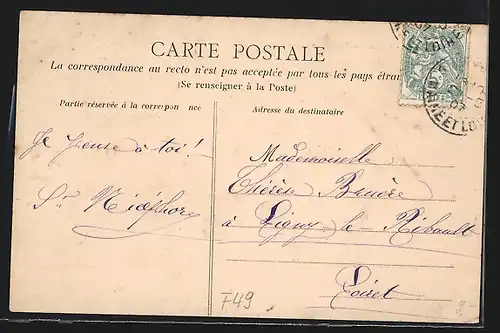 CARTE POSTALE
La correspondance au recto n'est pas acceptée par tous les pays étran
(Se renseigner à la Poste)
Partie réservée à la correspon nce
Adresse du destinataire
Je pense à toi!
Sr Nicéphore
Mademoiselle
Thérèse Bruère
à Ligny le Ribault
Loiret
F49